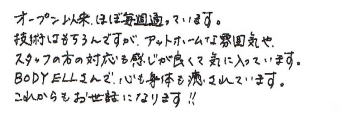 オープン以来、ほぼ毎週通っています。
技術はもちろんですが、アットホームな雰囲気や、
スタッフの方の対応も感じが良くて気に入っています。
BODY ELLさんで、心も身体も癒されています。
これからもお世話になります!!